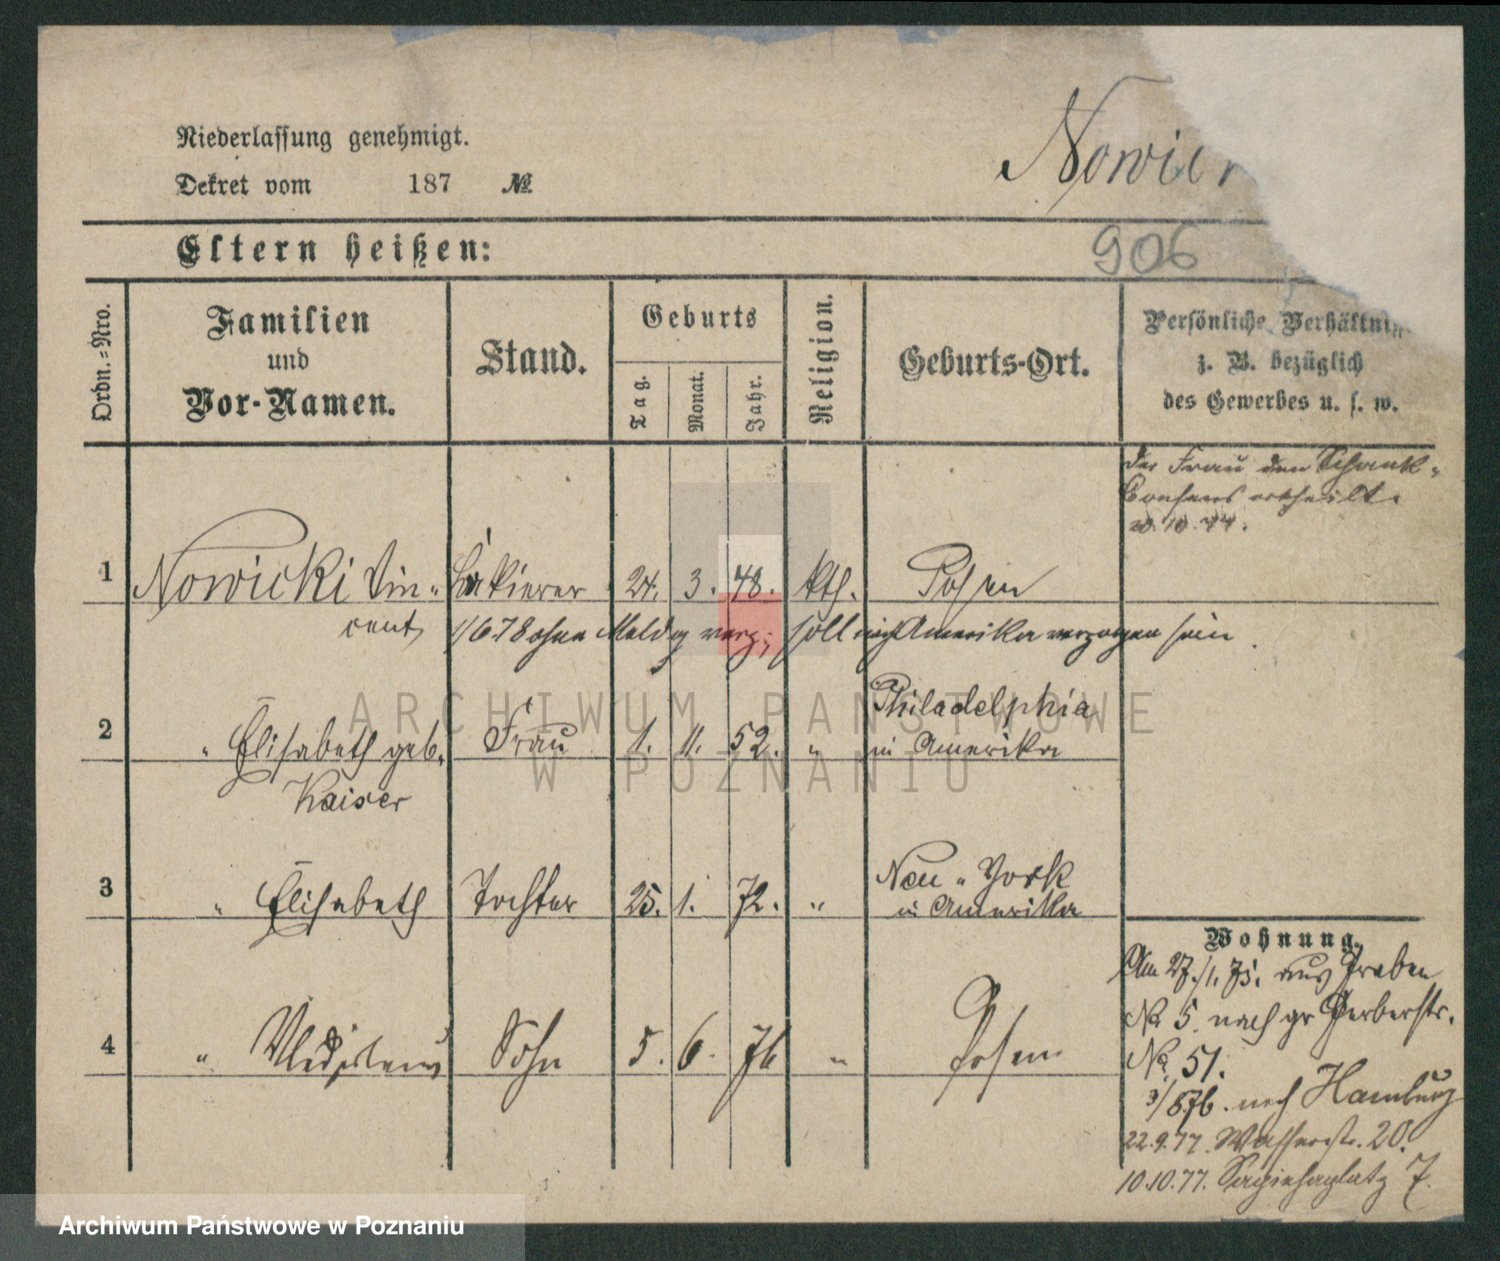 Niederlassung genehmigt.
Dekret vom 187 №
Nowic
Eltern heißen:
906
Ordn.-Nro.
Familien
und
Vor-Namen.
Stand.
Geburts
Tag.
Monat.
Jahr.
Religion.
Geburts-Ort.
Persönliche Verhältni
z. B. bezüglich
des Gewerbes u. s. w.
der Frau den Schank-
Consens ertheilt.
1 Nowicki Vin- Lakierer 24. 3. 48. kth. Posen
cent 1/6 78 ohne Meldg verz; soll nach Amerika verzogen sein.
2 " Elisabeth geb. Frau 1. 11. 52. " Philadelphia
in Amerika
Kaiser
3 " Elisabeth Tochter 25. 1. 72. " Neu-York
in Amerika
4 " Sohn 5. 6. 76 " Posen
Wohnung.
Am 27./1. 75. aus Graben
No 5. nach gr Gerberstr.
No. 51.
nach Hamburg
22.9.77. Wasserstr. 20.
10.10.77. Sapiehaplatz 7.
ARCHIWUM PAŃSTWOWE
W POZNANIU
Archiwum Państwowe w Poznaniu